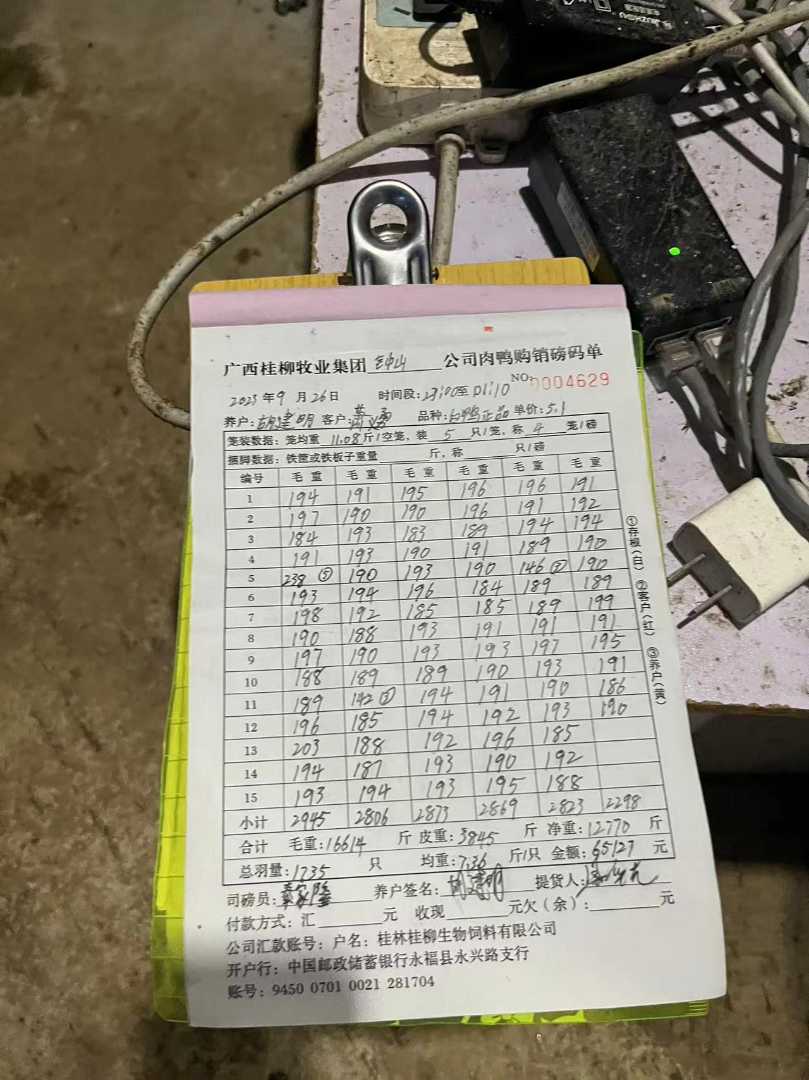 广西桂柳牧业集团 钟山 公司肉鸭购销磅码单
2023年9月26日 时间段:23:00至01:10 NO:0004629
养户:胡建明 客户: 品种:白鸭正品 单价:5.1
笼装数据:笼均重 11.08 斤/空笼,装 5 只/笼,称 4 笼/磅
捆脚数据:铁筐或铁板子重量 斤,称 只/磅
编号 毛重 毛重 毛重 毛重 毛重 毛重
1 194 191 195 196 196 191
2 197 190 190 196 191 192
3 184 193 183 189 194 194
4 191 193 190 191 189 190
5 238 ⑤ 190 193 190 146 ③ 190
6 193 194 196 184 189 189
7 198 192 185 185 189 199
8 190 188 193 191 191 191
9 197 190 193 193 197 195
10 188 189 189 190 193 191
11 189 142 ③ 194 191 190 186
12 196 185 194 192 193 190
13 203 188 192 196 185
14 194 187 193 190 192
15 193 194 193 195 188
小计 2945 2806 2873 2869 2823 2298
合计 毛重:16614 斤 皮重:3845 斤 净重:12770 斤
总羽量:1735 只 均重:7.36 斤/只 金额:65127 元
司磅员: 养户签名:胡建明 提货人:
付款方式:汇 元 收现 元欠(余): 元
公司汇款账号:户名:桂林桂柳生物饲料有限公司
开户行:中国邮政储蓄银行永福县永兴路支行
账号:9450 0701 0021 281704
①存根(白) ②客户(红) ③养户(黄)